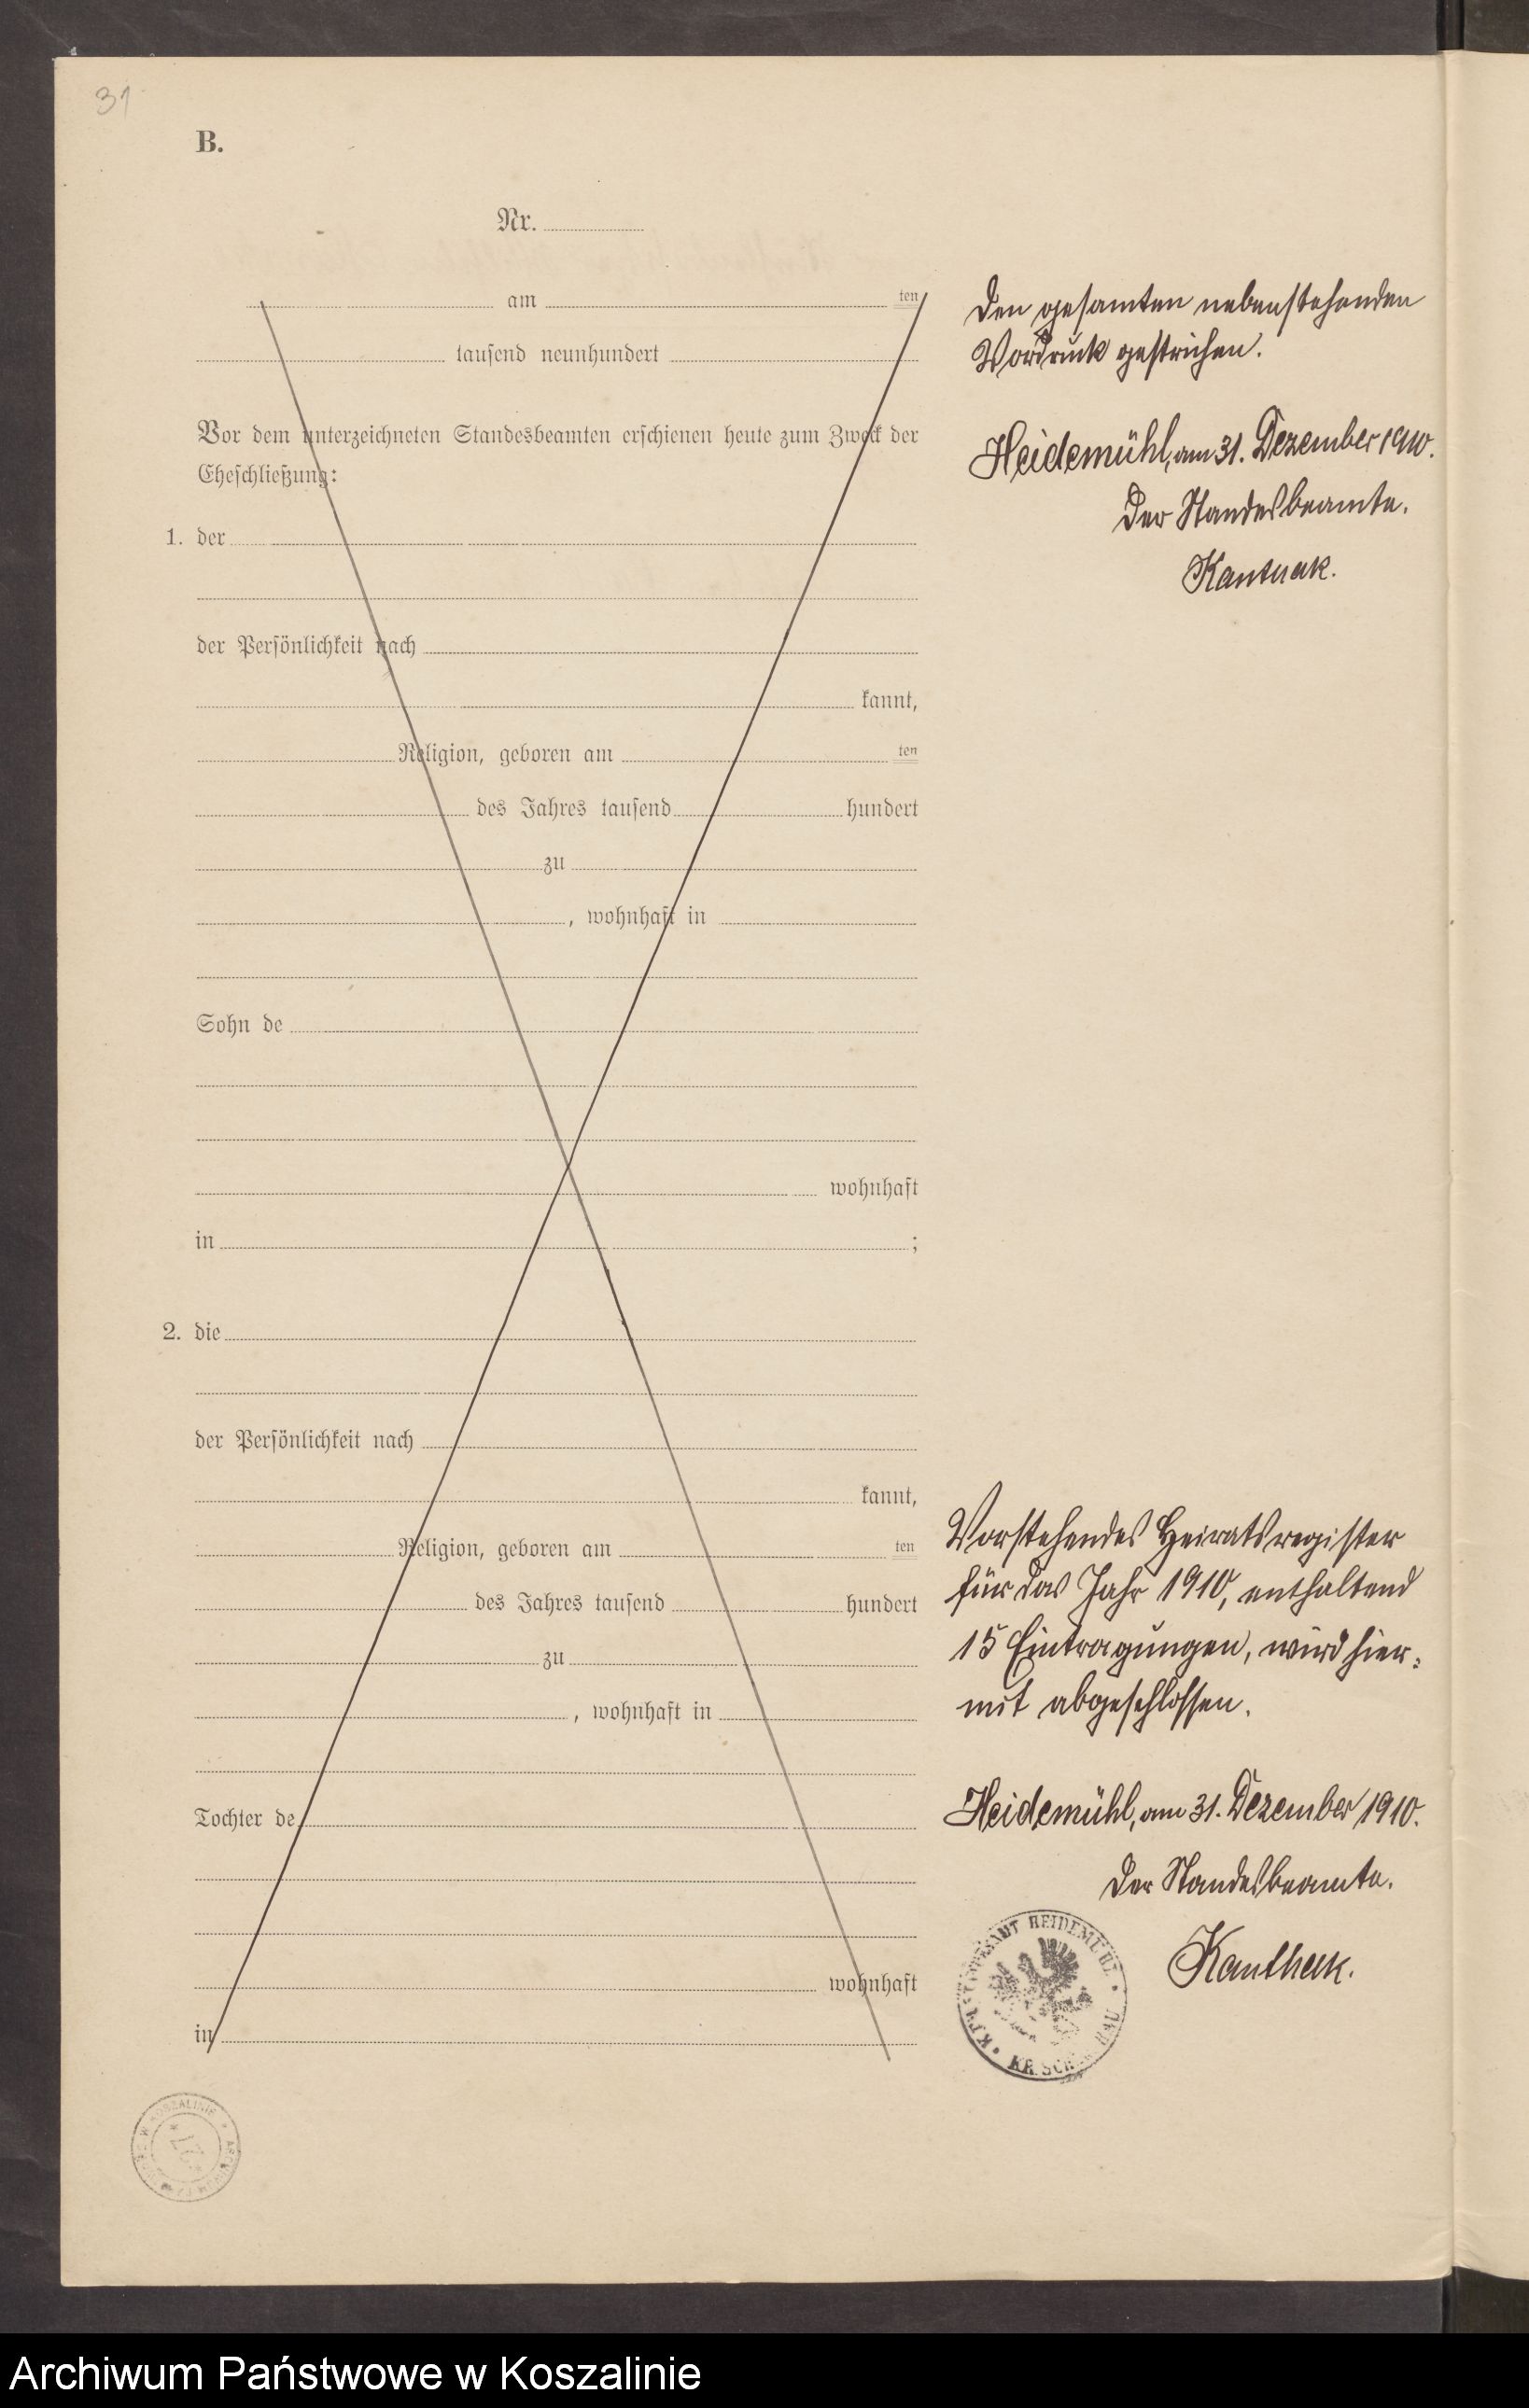 31
B.
Nr.
am ten
tausend neunhundert
Vor dem unterzeichneten Standesbeamten erschienen heute zum Zweck der
Eheschließung:
1. der
der Persönlichkeit nach
kannt,
Religion, geboren am ten
des Jahres tausend hundert
zu
, wohnhaft in
Sohn de
wohnhaft
in ;
2. die
der Persönlichkeit nach
kannt,
Religion, geboren am ten
des Jahres tausend hundert
zu
, wohnhaft in
Tochter de
wohnhaft
in
Den gesamten nebenstehenden
Vordruck gestrichen.
Heidemühl, am 31. Dezember 1910.
Der Standesbeamte.
Vorstehendes Heiratsregister
für das Jahr 1910, enthaltend
15 Eintragungen, wird hier=
mit abgeschlossen.
Heidemühl, am 31. Dezember 1910.
Der Standesbeamte.
HEIDEMÜHL
Archiwum Państwowe w Koszalinie